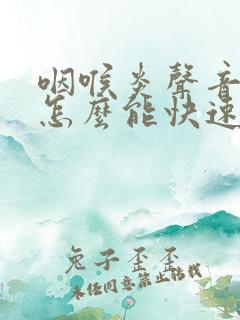 咽喉炎聲音
怎麼能快速
兔子歪歪
未任同意禁止轉載